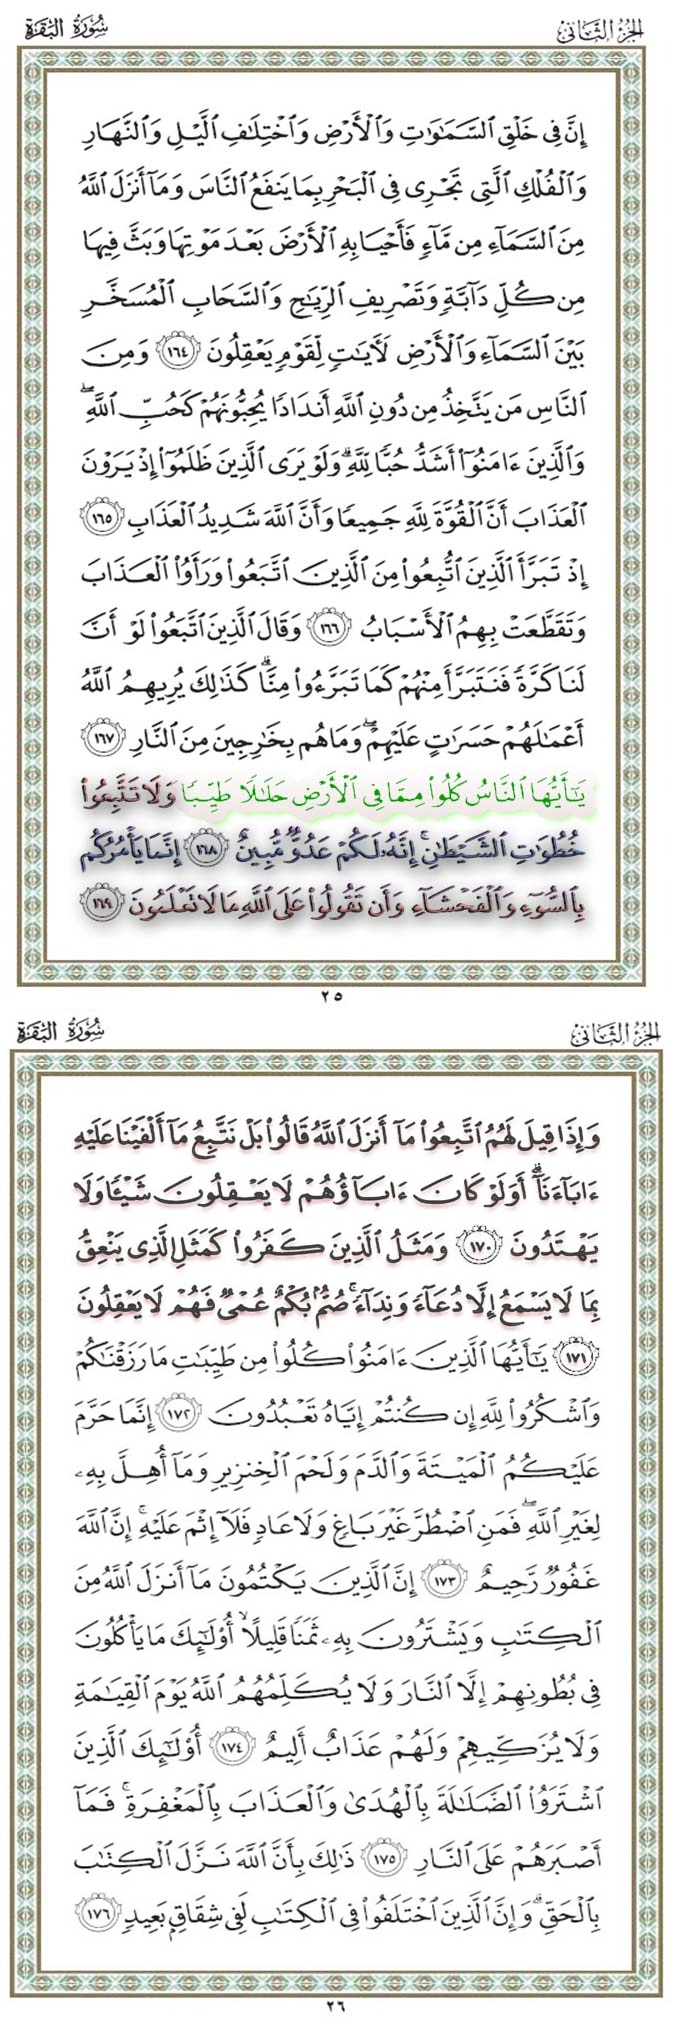 الجزء الثاني
سورة البقرة
إِنَّ فِي خَلْقِ ٱلسَّمَٰوَٰتِ وَٱلْأَرْضِ وَٱخْتِلَٰفِ ٱلَّيْلِ وَٱلنَّهَارِ
وَٱلْفُلْكِ ٱلَّتِي تَجْرِي فِي ٱلْبَحْرِ بِمَا يَنفَعُ ٱلنَّاسَ وَمَآ أَنزَلَ ٱللَّهُ
مِنَ ٱلسَّمَآءِ مِن مَّآءٍ فَأَحْيَا بِهِ ٱلْأَرْضَ بَعْدَ مَوْتِهَا وَبَثَّ فِيهَا
مِن كُلِّ دَآبَّةٍ وَتَصْرِيفِ ٱلرِّيَٰحِ وَٱلسَّحَابِ ٱلْمُسَخَّرِ
بَيْنَ ٱلسَّمَآءِ وَٱلْأَرْضِ لَءَايَٰتٍ لِّقَوْمٍ يَعْقِلُونَ ١٦٤ وَمِنَ
ٱلنَّاسِ مَن يَتَّخِذُ مِن دُونِ ٱللَّهِ أَندَادًا يُحِبُّونَهُمْ كَحُبِّ ٱللَّهِۖ
وَٱلَّذِينَ ءَامَنُوٓا۟ أَشَدُّ حُبًّا لِّلَّهِۗ وَلَوْ يَرَى ٱلَّذِينَ ظَلَمُوٓا۟ إِذْ يَرَوْنَ
ٱلْعَذَابَ أَنَّ ٱلْقُوَّةَ لِلَّهِ جَمِيعًا وَأَنَّ ٱللَّهَ شَدِيدُ ٱلْعَذَابِ ١٦٥
إِذْ تَبَرَّأَ ٱلَّذِينَ ٱتُّبِعُوا۟ مِنَ ٱلَّذِينَ ٱتَّبَعُوا۟ وَرَأَوُا۟ ٱلْعَذَابَ
وَتَقَطَّعَتْ بِهِمُ ٱلْأَسْبَابُ ١٦٦ وَقَالَ ٱلَّذِينَ ٱتَّبَعُوا۟ لَوْ أَنَّ
لَنَا كَرَّةً فَنَتَبَرَّأَ مِنْهُمْ كَمَا تَبَرَّءُوا۟ مِنَّاۗ كَذَٰلِكَ يُرِيهِمُ ٱللَّهُ
أَعْمَٰلَهُمْ حَسَرَٰتٍ عَلَيْهِمْۖ وَمَا هُم بِخَٰرِجِينَ مِنَ ٱلنَّارِ ١٦٧
يَٰٓأَيُّهَا ٱلنَّاسُ كُلُوا۟ مِمَّا فِي ٱلْأَرْضِ حَلَٰلًا طَيِّبًا وَلَا تَتَّبِعُوا۟
خُطُوَٰتِ ٱلشَّيْطَٰنِۚ إِنَّهُۥ لَكُمْ عَدُوٌّ مُّبِينٌ ١٦٨ إِنَّمَا يَأْمُرُكُم
بِٱلسُّوٓءِ وَٱلْفَحْشَآءِ وَأَن تَقُولُوا۟ عَلَى ٱللَّهِ مَا لَا تَعْلَمُونَ ١٦٩
٢٥
الجزء الثاني
سورة البقرة
وَإِذَا قِيلَ لَهُمُ ٱتَّبِعُوا۟ مَآ أَنزَلَ ٱللَّهُ قَالُوا۟ بَلْ نَتَّبِعُ مَآ أَلْفَيْنَا عَلَيْهِ
ءَابَآءَنَآۗ أَوَلَوْ كَانَ ءَابَآؤُهُمْ لَا يَعْقِلُونَ شَيْـًٔا وَلَا
يَهْتَدُونَ ١٧٠ وَمَثَلُ ٱلَّذِينَ كَفَرُوا۟ كَمَثَلِ ٱلَّذِي يَنْعِقُ
بِمَا لَا يَسْمَعُ إِلَّا دُعَآءً وَنِدَآءًۚ صُمٌّۢ بُكْمٌ عُمْيٌ فَهُمْ لَا يَعْقِلُونَ
١٧١ يَٰٓأَيُّهَا ٱلَّذِينَ ءَامَنُوا۟ كُلُوا۟ مِن طَيِّبَٰتِ مَا رَزَقْنَٰكُمْ
وَٱشْكُرُوا۟ لِلَّهِ إِن كُنتُمْ إِيَّاهُ تَعْبُدُونَ ١٧٢ إِنَّمَا حَرَّمَ
عَلَيْكُمُ ٱلْمَيْتَةَ وَٱلدَّمَ وَلَحْمَ ٱلْخِنزِيرِ وَمَآ أُهِلَّ بِهِۦ
لِغَيْرِ ٱللَّهِۖ فَمَنِ ٱضْطُرَّ غَيْرَ بَاغٍ وَلَا عَادٍ فَلَآ إِثْمَ عَلَيْهِۚ إِنَّ ٱللَّهَ
غَفُورٌ رَّحِيمٌ ١٧٣ إِنَّ ٱلَّذِينَ يَكْتُمُونَ مَآ أَنزَلَ ٱللَّهُ مِنَ
ٱلْكِتَٰبِ وَيَشْتَرُونَ بِهِۦ ثَمَنًا قَلِيلًاۙ أُو۟لَٰٓئِكَ مَا يَأْكُلُونَ
فِي بُطُونِهِمْ إِلَّا ٱلنَّارَ وَلَا يُكَلِّمُهُمُ ٱللَّهُ يَوْمَ ٱلْقِيَٰمَةِ
وَلَا يُزَكِّيهِمْ وَلَهُمْ عَذَابٌ أَلِيمٌ ١٧٤ أُو۟لَٰٓئِكَ ٱلَّذِينَ
ٱشْتَرَوُا۟ ٱلضَّلَٰلَةَ بِٱلْهُدَىٰ وَٱلْعَذَابَ بِٱلْمَغْفِرَةِۚ فَمَآ
أَصْبَرَهُمْ عَلَى ٱلنَّارِ ١٧٥ ذَٰلِكَ بِأَنَّ ٱللَّهَ نَزَّلَ ٱلْكِتَٰبَ
بِٱلْحَقِّۗ وَإِنَّ ٱلَّذِينَ ٱخْتَلَفُوا۟ فِي ٱلْكِتَٰبِ لَفِي شِقَاقٍۭ بَعِيدٍ ١٧٦
٢٦